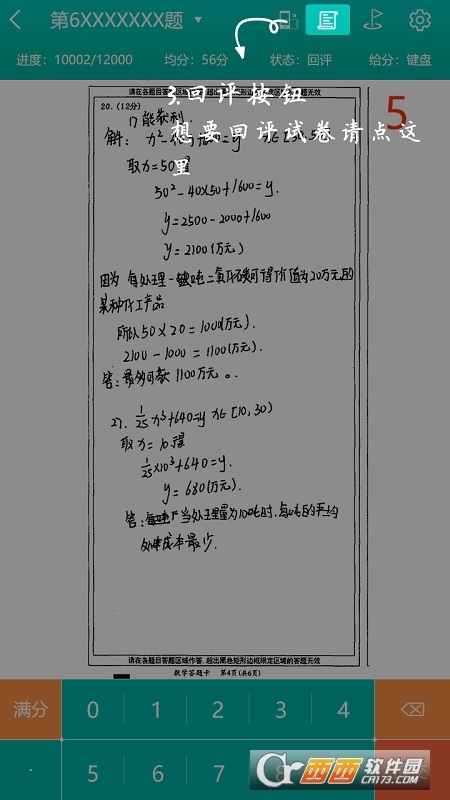 第6XXXXXXX题
进度：10002/12000 均分：56分 状态：回评 给分：键盘
请在各题目答题区域作答，超出黑色矩形边框限定区域的答案无效
3.回评按钮
想要回评试卷请点这里
5
20. (12分)
1) 能获利
解：
取x=50得
50²-40×50+1600=y.
y=2500-2000+1600
y=2100(万元)
因为 每处理一吨二氧化碳可得价值为20万元的
某种化工产品
所以50×20=1000(万元).
2100-1000=1100(万元)
答：最多可获1100万元。
27. 1/25 x³+640=y x∈[10,30)
取x=10.得
1/25×10³+640=y.
y=680(万元).
答：当处理量为10吨时，每吨的平均
处理成本最少.
请在各题目答题区域作答，超出黑色矩形边框限定区域的答题无效
数学答题卡 第4页(共6页)
满分 0 1 2 3 4
· 5 6 7 8
西西软件园
CR173.COM